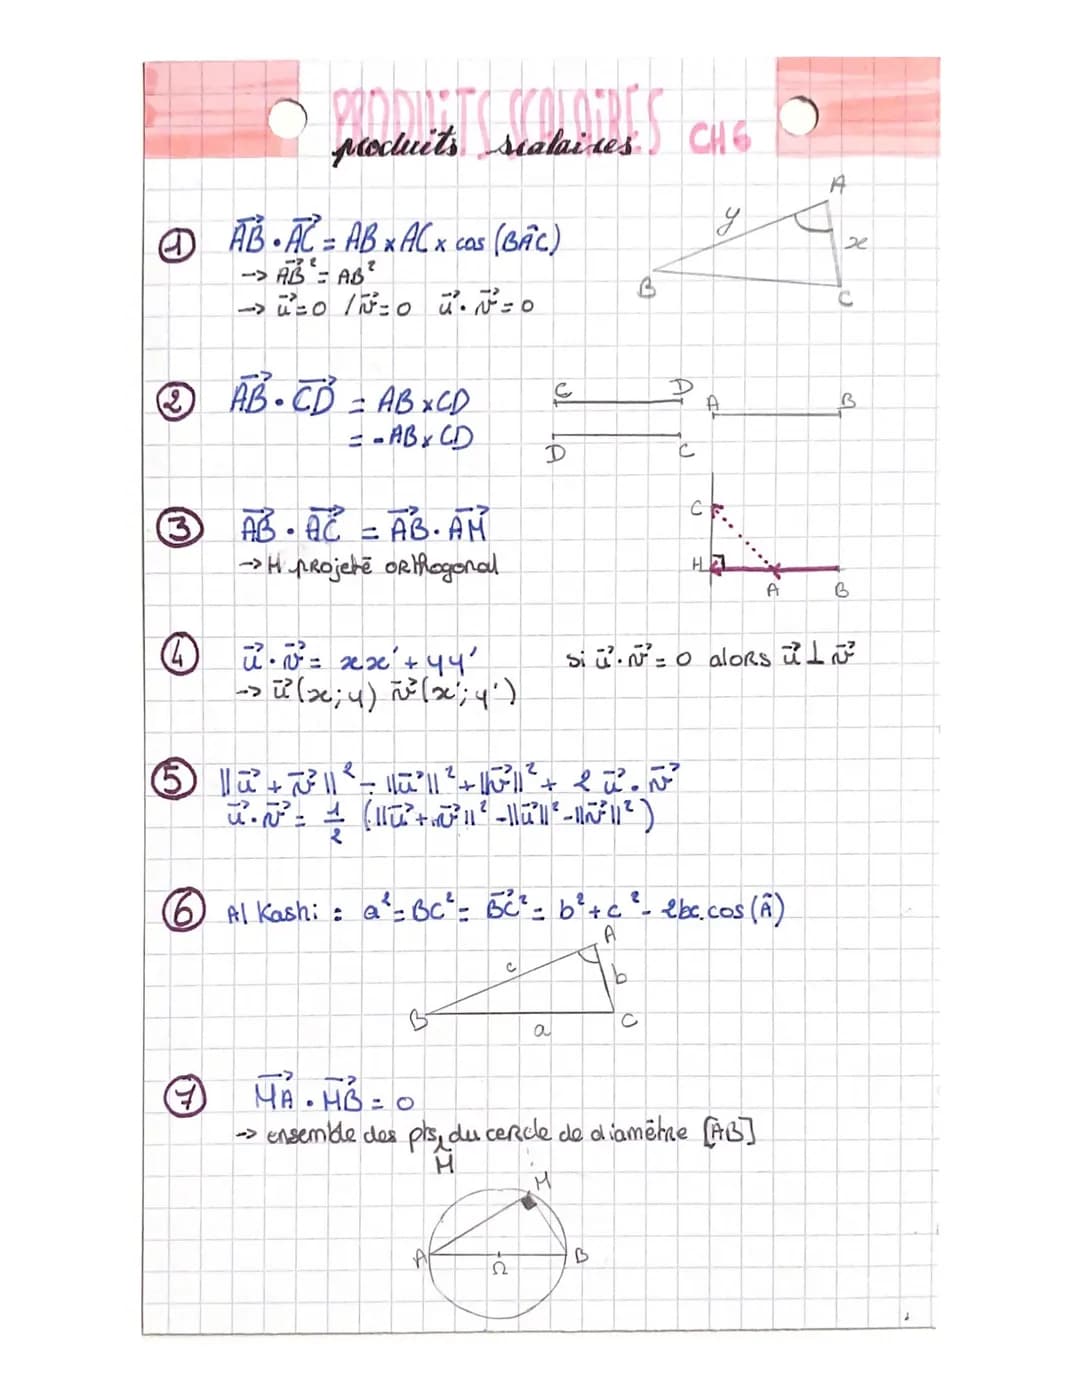 PRODUITS SCALAIRES
produits scalaires CH6
A
y
x
B
C
① AB⃗ · AC⃗ = AB x AC x cos (BÂC)
→ AB⃗² = AB²
→ u⃗=0 / v⃗=0 u⃗ · v⃗ = 0
② AB⃗ · CD⃗ = AB x CD
= - AB x CD
C D A B
D C
③ AB⃗ · AC⃗ = AB⃗ · AH⃗
→ H projeté orthogonal
C
H A B
④ u⃗ · v⃗ = xx' + yy' si u⃗ · v⃗ = 0 alors u⃗ ⊥ v⃗
→ u⃗ (x; y) v⃗ (x'; y')
⑤ ||u⃗ + v⃗||² = ||u⃗||² + ||v⃗||² + 2 u⃗ · v⃗
u⃗ · v⃗ = 1/2 (||u⃗ + v⃗||² - ||u⃗||² - ||v⃗||²)
⑥ Al Kashi : a² = BC² = BC⃗² = b² + c² - 2bc.cos (Â)
A
c b
B a C
⑦ MA⃗ · MB⃗ = 0
→ ensemble des pts M du cercle de diamètre [AB]
M
A Ω B